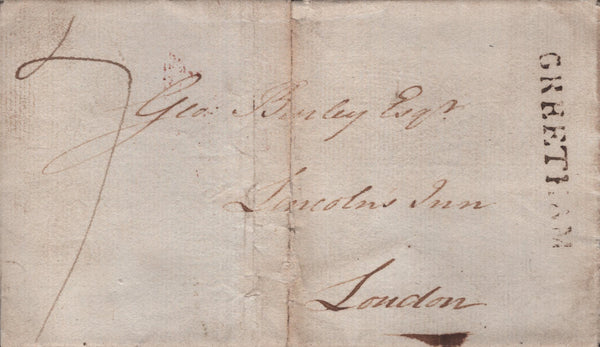 7
Geo: Burley Esqr.
Lincoln's Inn
London
GREETHAM